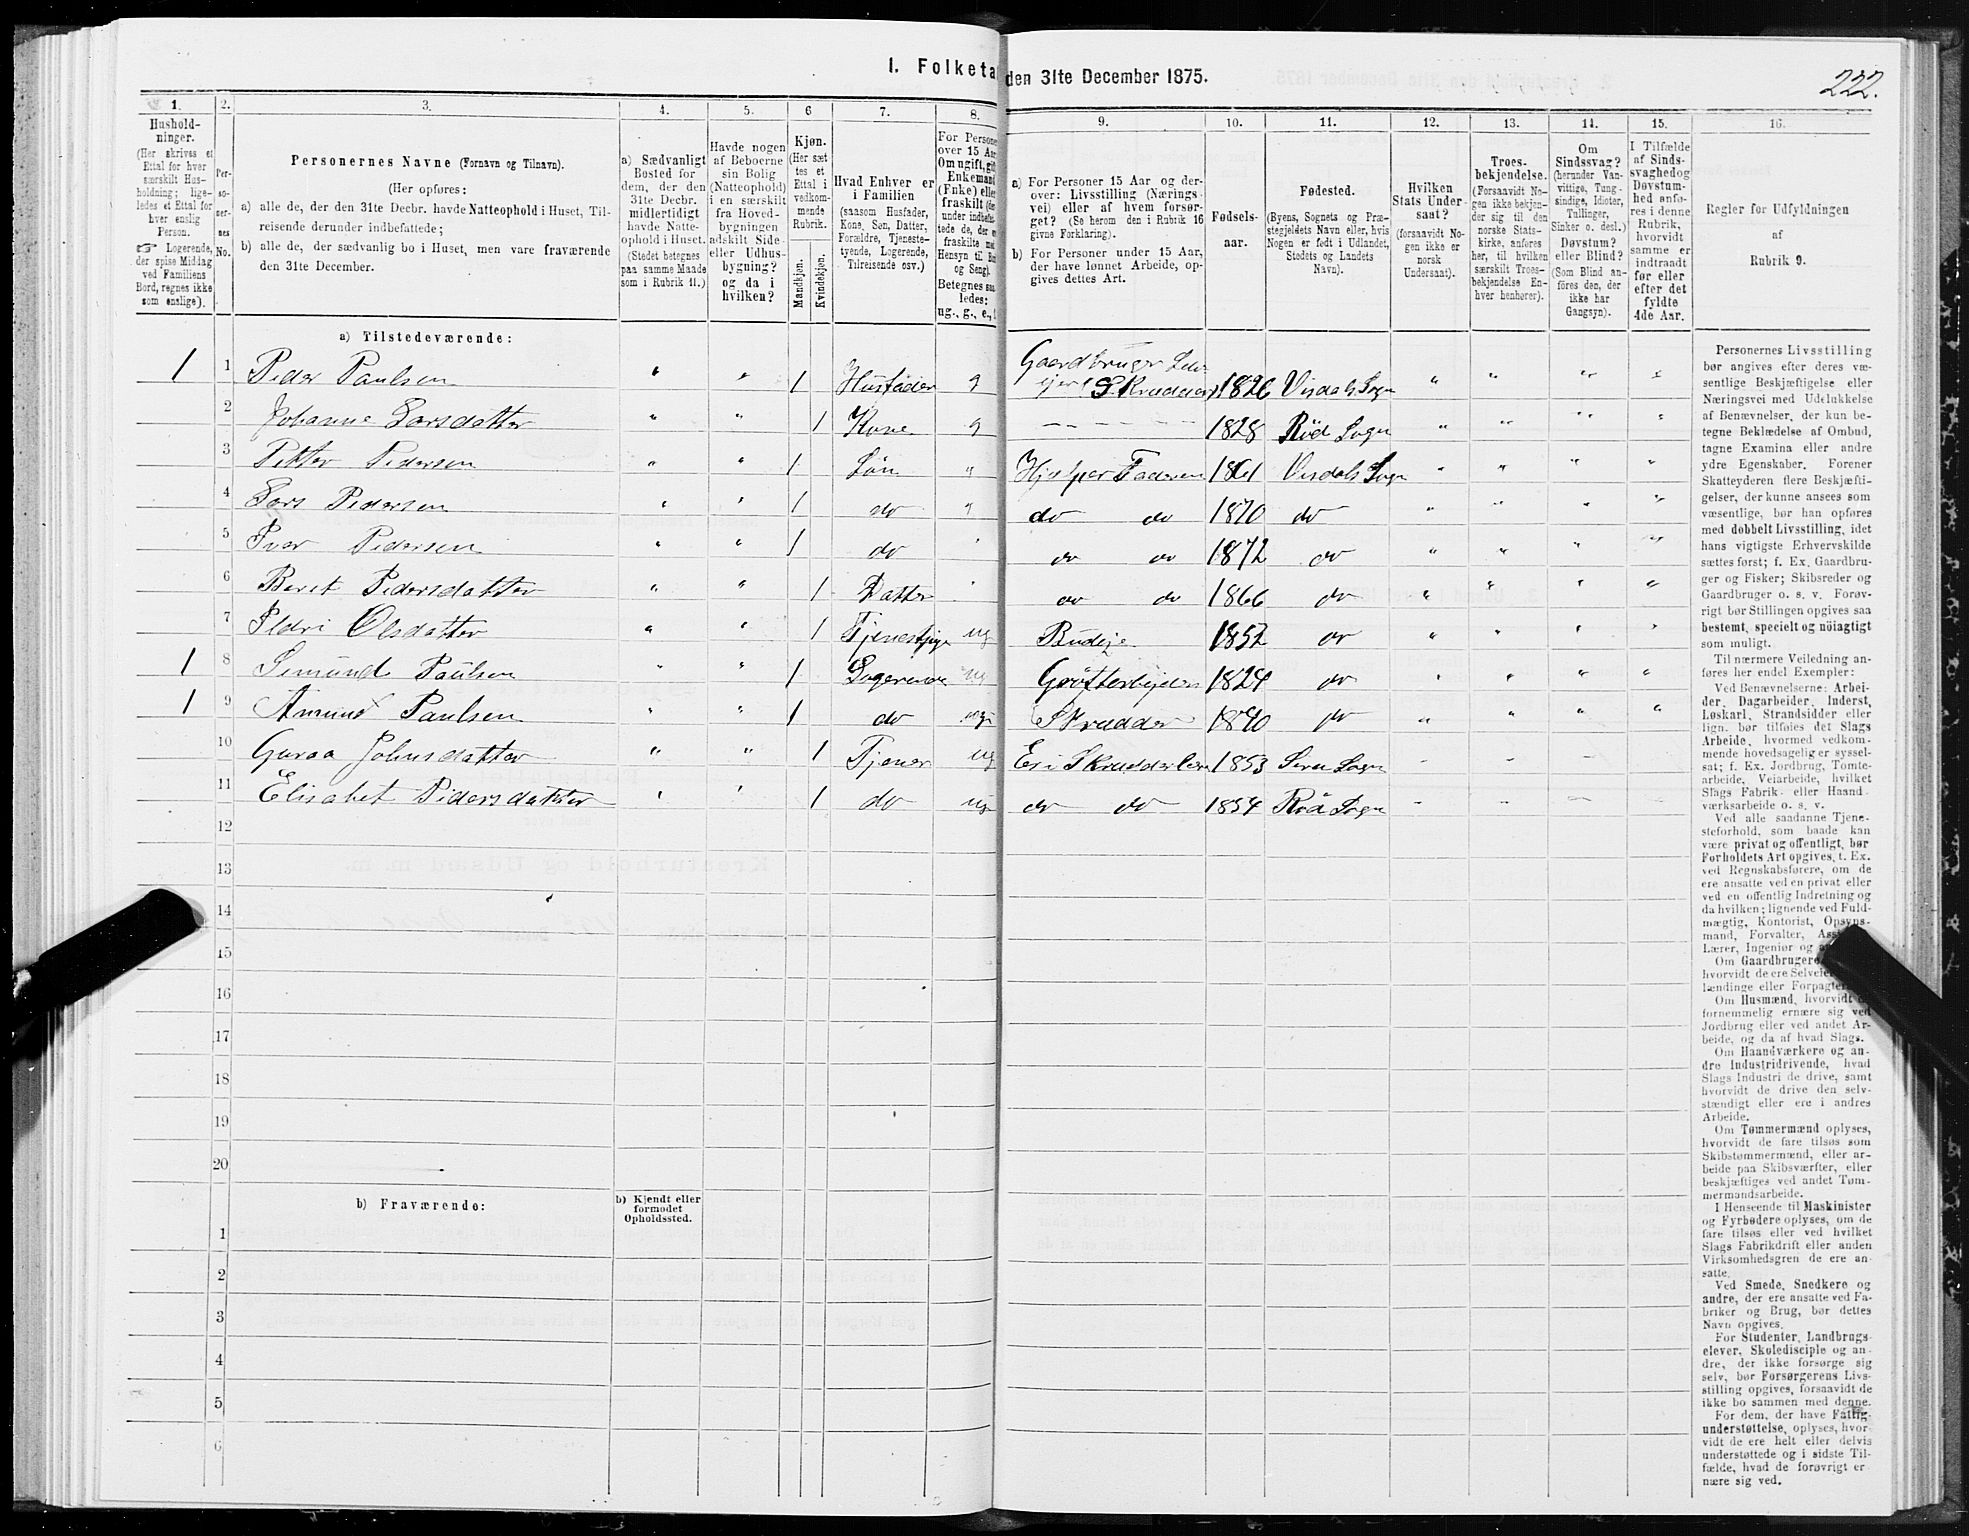 I. Folketa den 31te December 1875.
222.
1. 2. 3. 4. 5. 6 7. 8. 9. 10. 11. 12. 13. 14. 15. 16.
Hushold-
ninger.
(Her skrives et
Ettal for hver
særskilt Hus-
holdning; lige-
ledes et Ettal for
hver enslig
Person.
☞ Logerende,
der spise Middag
ved Familiens
Bord, regnes ikke
som enslige).
Per-
so-
ner-
nes
No.
Personernes Navne (Fornavn og Tilnavn).
(Her opføres:
a) alle de, der den 31te Decbr. havde Natteophold i Huset, Til-
reisende derunder indbefattede;
b) alle de, der sædvanlig bo i Huset, men vare fraværende
den 31te December.
a) Sædvanligt
Bosted for
dem, der den
31te Decbr.
midlertidigt
havde Natte-
ophold i Huset.
(Stedet betegnes
paa samme Maade
som i Rubrik 11.)
Havde nogen
af Beboerne
sin Bolig
(Natteophold)
i en særskilt
fra Hoved-
bygningen
adskilt Side-
eller Udhus-
bygning?
og da i
hvilken?
Kjøn.
(Her sæt
tes et
Ettal i
vedkom-
mende
Rubrik.
Mandkjøn.
Kvindekjøn.
Hvad Enhver er
i Familien
(saasom Husfader,
Kone, Søn, Datter,
Forældre, Tjeneste-
tyende, Logerende,
Tilreisende osv.)
For Persone
over 15 Aa
Om ugift, gif
Enkemand
(Enke) elle
fraskilt
under indbefat
tede de, der e
fraskilte med
Hensyn til Bo
og Seng).
Betegnes saa
ledes:
ug., g., e.,
a) For Personer 15 Aar og der-
over: Livsstilling (Nærings-
vei) eller af hvem forsør-
get? (Se herom den i Rubrik 16
givne Forklaring).
b) For Personer under 15 Aar,
der have lønnet Arbeide, op-
gives dettes Art.
Fødsels-
aar.
Fødested.
(Byens, Sognets og Præ-
stegjeldets Navn eller, hvis
Nogen er født i Udlandet,
Stedets og Landets
Navn).
Hvilken
Stats Under-
saat?
(forsaavidt No-
gen ikke er
norsk
Undersaat).
Troes-
bekjendelse.
(Forsaavidt No-
gen ikke bekjen-
der sig til den
norske Stats-
kirke, anføres
her, til hvilken
særskilt Troes-
bekjendelse En-
hver henhører).
Om
Sindssvag?
(herunder Van-
vittige, Tung-
sindige, Idioter,
Tullinger,
Sinker o. desl.)
Døvstum?
eller Blind?
(Som Blind an-
føres den, der
ikke har
Gangsyn).
I Tilfælde
af Sinds-
svaghed og
Døvstum-
hed anfø-
res i denne
Rubrik,
hvorvidt
samme er
indtraadt
før eller
efter det
fyldte
4de Aar.
Regler for Udfyldningen
af
Rubrik 9.
a) Tilstedeværende:
1 1 Peder Paulsen " " 1 Husfader g Gaardbruger Selv
ejer Skrædder 1826 Visdals Sogn " " " "
2 Johanne Larsdatter " " 1 Kone g - - - - - 1828 Röd Sogn " " " "
3 Petter Pedersen " " 1 Sön " Hjelper Faderen 1861 Visdals Sogn " " " "
4 Lars Pedersen " " 1 do " do do 1870 do " " " "
5 Iver Pedersen " " 1 do " do do 1872 do " " " "
6 Beret Pedersdatter " " 1 Datter " do do 1866 do " " " "
7 Ildri Olsdatter " " 1 Tjenestpige ug Budeje 1852 do " " " "
1 8 Simund Paulsen " " 1 Logerende ug Gröftarbejder 1824 do " " " "
1 9 Amund Paulsen " " 1 do ug Skrædder 1840 do " " " "
10 Guraa Johnsdatter " " 1 Tjener ug Er i Skrædderlære 1853 Sogn - - - -
11 Elisabet Pedersdatter " " 1 do ug do do 1854 Röd Sogn - - - -
12
13
14
15
16
17
18
19
20
b) Fraværende:
b) Kjendt eller
formodet
Opholdssted.
1
2
3
4
5
6
Personernes Livsstilling
bør angives efter deres væ-
sentlige Beskjæftigelse eller
Næringsvei med Udelukkelse
af Benævnelser, der kun be-
tegne Beklædelse af Ombud,
tagne Examina eller andre
ydre Egenskaber. Forener
Skatteyderen flere Beskjæfti-
gelser, der kunne ansees som
væsentlige, bør han opføres
med dobbelt Livsstilling, idet
hans vigtigste Erhvervskilde
sættes først; f. Ex. Gaardbru-
ger og Fisker; Skibsreder og
Gaardbruger o. s. v. Forøv-
rigt bør Stillingen opgives saa
bestemt, specielt og nøiagtigt
som muligt.
Til nærmere Veiledning an-
føres her endel Exempler:
Ved Benævnelserne: Arbei-
der, Dagarbeider, Inderst,
Løskarl, Strandsidder eller
lign. bør tilføies det Slags
Arbeide, hvormed vedkom-
mende hovedsagelig er syssel-
sat; f. Ex. Jordbrug, Tomte-
arbeide, Veiarbeide, hvilket
Slags Fabrik- eller Haand-
værksarbeide o. s. v.
Ved alle saadanne Tjene-
steforhold, som baade kan
være privat og offentligt, bør
Forholdets Art opgives, t. Ex.
ved Regnskabsførere, om de
ere ansatte ved en privat eller
ved en offentlig Indretning og
da hvilken; lignende ved Fuld-
mægtig, Kontorist, Opsyns-
mand, Forvalter,
Lærer, Ingeniør og
Om Gaardbrugere,
hvorvidt de ere
lændinge eller
Om Husmænd, hvorvidt
fornemmelig ernære sig ved
Jordbrug eller ved andet Ar-
beide, og da af hvad Slags.
Om Haandværkere og an-
dre Industridrivende, hvad
Slags Industri de drive, samt
hvorvidt de drive den selv-
stændigt eller ere i andres
Arbeide.
Om Tømmermænd oplyses,
hvorvidt de fare tilsøs som
Skibstømmermænd, eller ar-
beide paa Skibsværfter, eller
beskjæftiges ved andet Tøm-
mermandsarbeide.
I Henseende til Maskinister
og Fyrbødere oplyses, om de
fare tilsøs eller ved hvilket
Slags Fabrikdrift eller anden
Virksomhedsgren de ere an-
satte.
Ved Smede, Snedkere og
andre, der ere ansatte ved Fa-
briker og Brug, bør dettes
Navn opgives.
For Studenter, Landbrugs-
elever, Skoledisciple og an-
dre, der ikke forsørge sig
selv, bør Forsørgerens Livs-
stilling opgives, forsaavidt de
ikke bo sammen med denne.
For dem, der have Fattig-
understøttelse, oplyses, hvor-
vidt de ere helt eller delvis
understøttede og i sidste Til-
fælde, hvad de forøvrigt er-
nære sig ved.